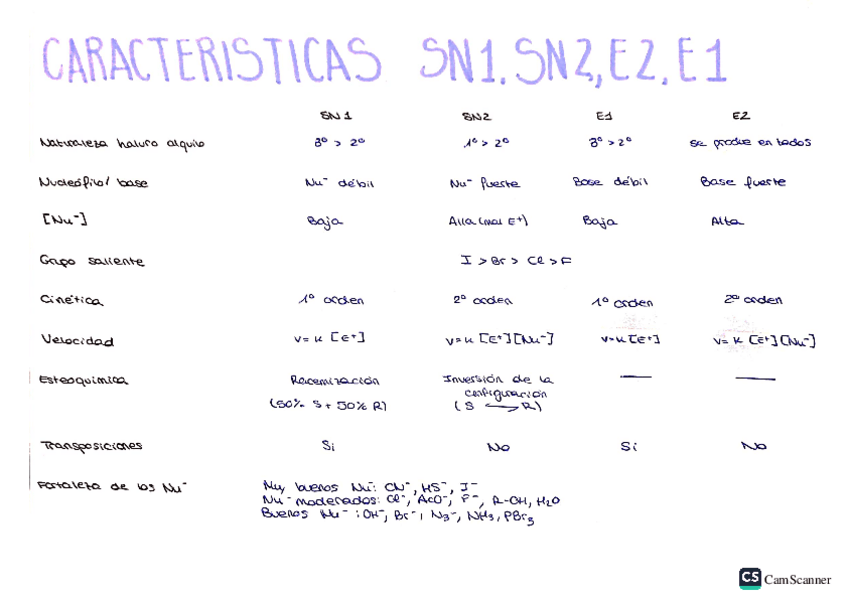 CARACTERISTICAS SN1, SN2, E2, E1
SN1 SN2 E1 E2
Naturaleza haluro alquilo 3º > 2º 1º > 2º 3º > 2º se produce en todos
Nucleófilo/base Nu⁻ débil Nu⁻ fuerte Base débil Base fuerte
[Nu⁻] Baja Alta (mal E⁺) Baja Alta
Grupo saliente I > Br > Cl > F
Cinética 1º orden 2º orden 1º orden 2º orden
Velocidad v = k [E⁺] v = k [E⁺][Nu⁻] v = k [E⁺] v = k [E⁺][Nu⁻]
Esteoquímica Racemización Inversión de la — —
configuración
(50% S + 50% R) (S ⟷ R)
Transposiciones Si No Si No
Fortaleza de los Nu⁻ Muy buenos Nu⁻: CN⁻, HS⁻, I⁻
Nu⁻ moderados: Cl⁻, AcO⁻, F⁻, R-OH, H2O
Buenos Nu⁻: OH⁻, Br⁻, N3⁻, NH3, PBr3
CS CamScanner